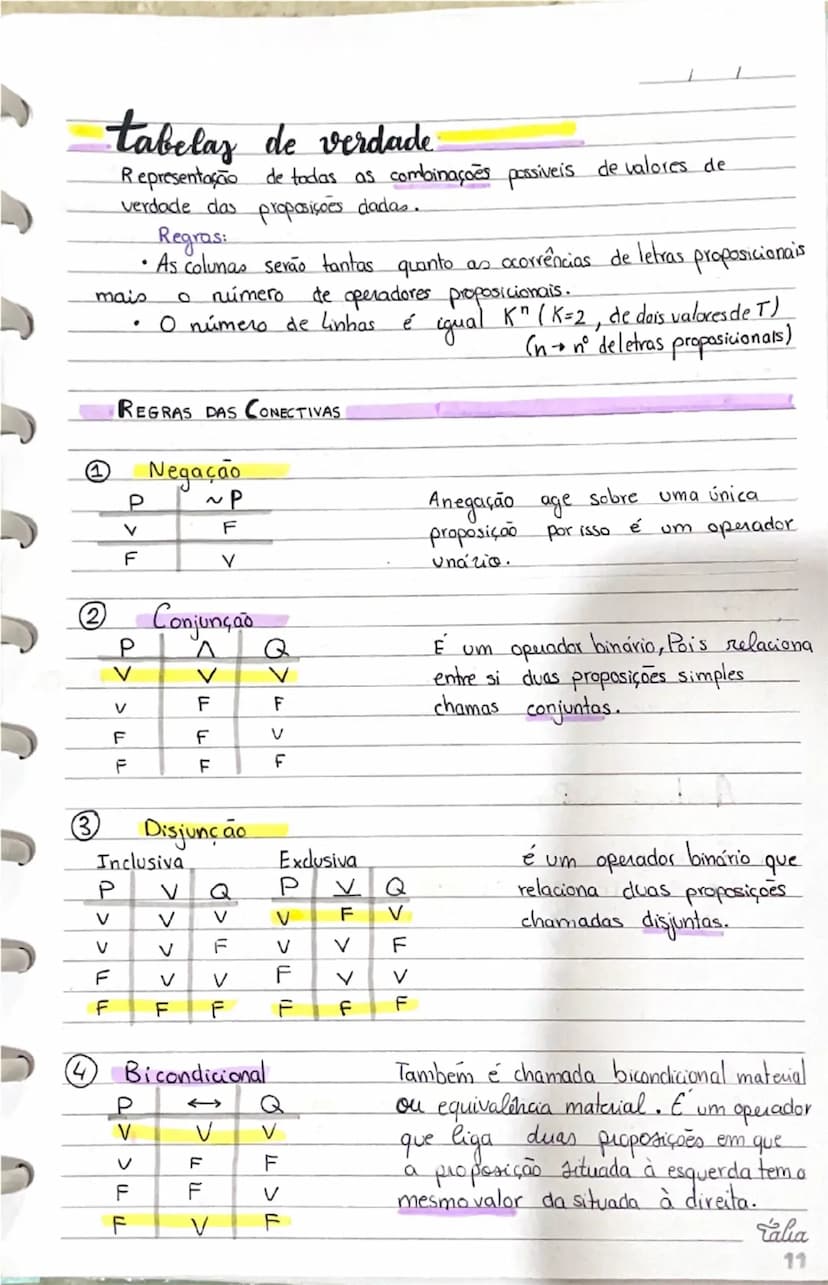 tabelas de verdade
Representação de todas as combinações possiveis de valores de
verdade das proposições dadas.
Regras:
• As colunas serão tantas quanto as ocorrências de letras proposicionais
mais o número de operadores proposicionais.
• O número de linhas é igual Kⁿ (K=2, de dois valores de T)
(n → nº de letras proposicionais)
REGRAS DAS CONECTIVAS
① Negação
P ~P
V F
F V
A negação age sobre uma única
proposição por isso é um operador
unário.
② Conjunção
P Λ Q
V V V
V F F
F F V
F F F
É um operador binário, Pois relaciona
entre si duas proposições simples
chamas conjuntas.
③ Disjunção
Inclusiva Exclusiva
P V Q P V Q
V V V V F V
V V F V V F
F V V F V V
F F F F F F
é um operador binário que
relaciona duas proposições
chamadas disjuntas.
④ Bicondicional
P ↔ Q
V V V
V F F
F F V
F V F
Também é chamada bicondicional material
ou equivalência material. É um operador
que liga duas proposições em que
a proposição situada à esquerda tem o
mesmo valor da situada à direita.
Tália
11